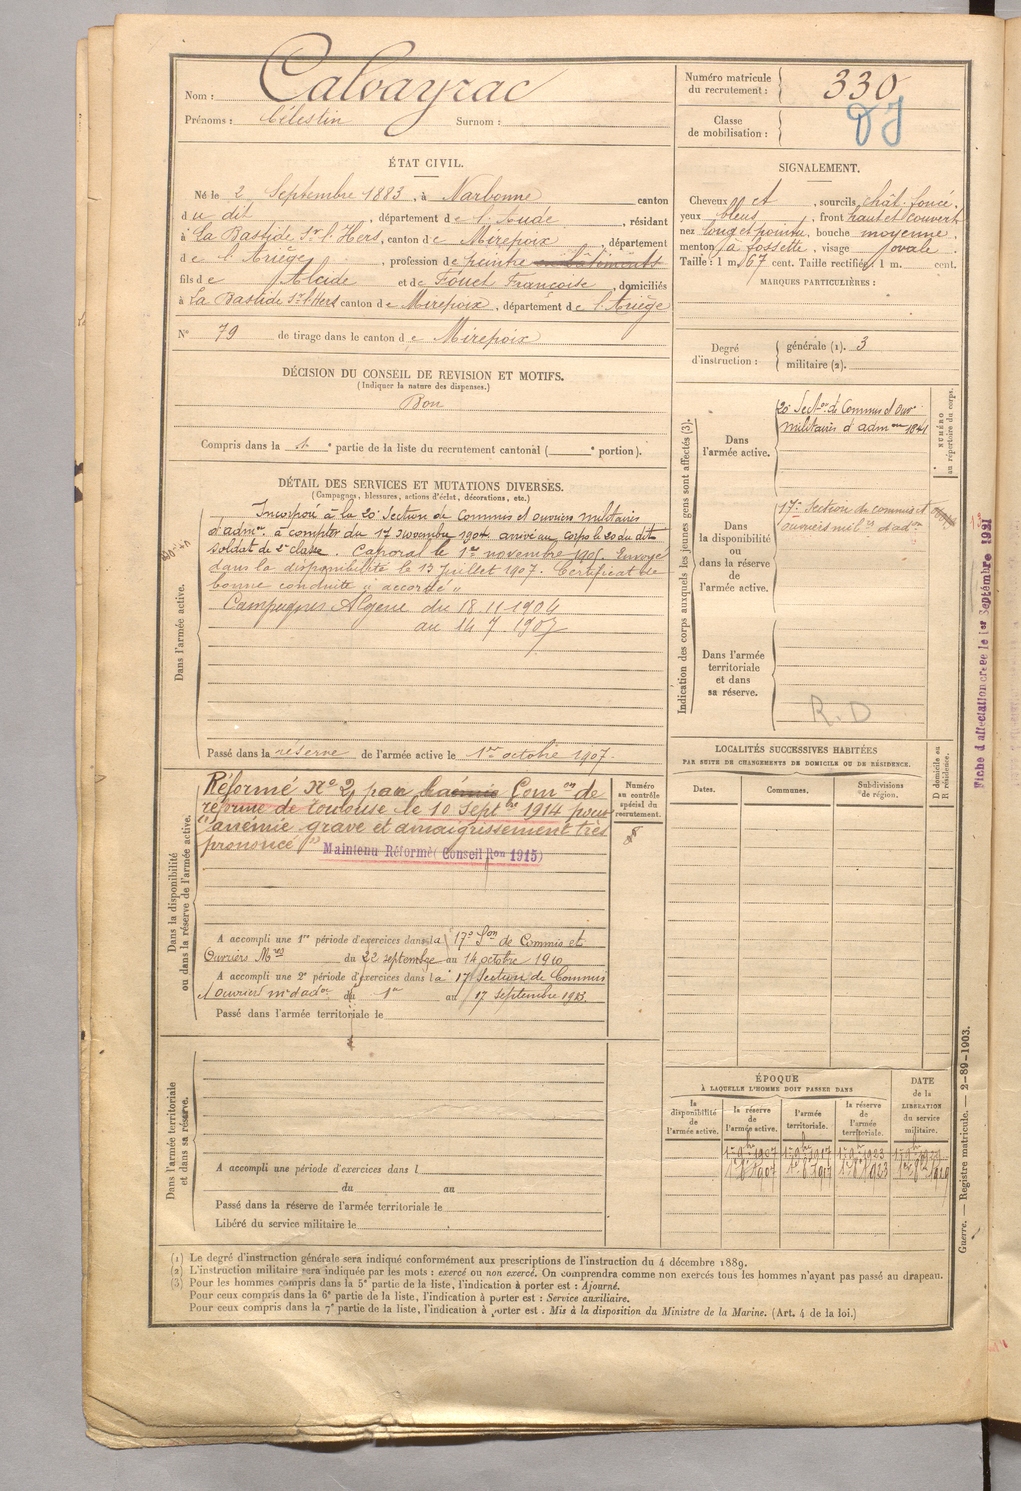 Nom : Calvayrac
Prénoms : Célestin Surnom :
Numéro matricule du recrutement : 330
Classe de mobilisation :
ÉTAT CIVIL.
Né le 2 Septembre 1883, à Narbonne canton
du dit, département de l'Aude, résidant
à La Bastide Sr l'Hers, canton de Mirepoix, département
de l'Ariège, profession de peintre en bâtiments
fils de Alcide et de Fouet Françoise, domiciliés
à La Bastide Sr l'Hers canton de Mirepoix, département de l'Ariège
N° 79 de tirage dans le canton de Mirepoix
SIGNALEMENT.
Cheveux et, sourcils chât. foncé,
yeux bleus, front haut et couvert
nez long et pointu, bouche moyenne,
menton à fossette, visage ovale.
Taille : 1 m. 67 cent. Taille rectifiée : 1 m. cent.
MARQUES PARTICULIÈRES :
Degré d'instruction : générale (1). 3
militaire (2).
DÉCISION DU CONSEIL DE REVISION ET MOTIFS.
(Indiquer la nature des dispenses.)
Bon
Compris dans la 1e partie de la liste du recrutement cantonal ( e portion).
DÉTAIL DES SERVICES ET MUTATIONS DIVERSES.
(Campagnes, blessures, actions d'éclat, décorations, etc.)
Dans l'armée active.
Incorporé à la 20e Section de Commis et ouvriers militaires
d'admon à compter du 17 novembre 1904, arrivé au corps le 20 du dit
soldat de 2e classe. Caporal le 1er novembre 1905. Envoyé
dans la disponibilité le 13 Juillet 1907. Certificat de
bonne conduite "accordé"
Campagnes Algérie du 18 11 1904
au 14 7 1907
Passé dans la réserve de l'armée active le 1er octobre 1907.
Indication des corps auxquels les jeunes gens sont affectés (3).
NUMÉRO au répertoire du corps.
Dans l'armée active.
20e Secton de Commis et Ouv.
militaires d'admon 1841
Dans la disponibilité ou dans la réserve de l'armée active.
17e Section de commis et
ouvriers milres d'adon
Dans l'armée territoriale et dans sa réserve.
R.D
Fiche d'affectation créée le 1er Septembre 1921
Dans la disponibilité ou dans la réserve de l'armée active.
Réformé N° 2 par Comon de
réforme de toulouse le 10 Septbre 1914 pour
"anémie grave et amaigrissement très
prononcé"
Maintenu Réformé (Conseil Ron 1915)
Numéro au contrôle spécial du recrutement.
A accompli une 1re période d'exercices dans la 17e Son de Commis et
Ouvriers Mres du 22 septembre au 14 octobre 1910
A accompli une 2e période d'exercices dans la 17e Section de Commis
et Ouvriers m d'adon du 1er au 17 Septembre 1913.
Passé dans l'armée territoriale le
LOCALITÉS SUCCESSIVES HABITÉES
PAR SUITE DE CHANGEMENTS DE DOMICILE OU DE RÉSIDENCE.
Dates. Communes. Subdivisions de région. D domicile ou R résidence.
Dans l'armée territoriale et dans sa réserve.
A accompli une période d'exercices dans l
du au
Passé dans la réserve de l'armée territoriale le
Libéré du service militaire le
ÉPOQUE
À LAQUELLE L'HOMME DOIT PASSER DANS
la disponibilité de l'armée active.
la réserve de l'armée active.
l'armée territoriale.
la réserve de l'armée territoriale.
DATE de la LIBÉRATION du service militaire.
Guerre. — Registre matricule. — 2-89-1903.
(1) Le degré d'instruction générale sera indiqué conformément aux prescriptions de l'instruction du 4 décembre 1889.
(2) L'instruction militaire sera indiquée par les mots : exercé ou non exercé. On comprendra comme non exercés tous les hommes n'ayant pas passé au drapeau.
(3) Pour les hommes compris dans la 5e partie de la liste, l'indication à porter est : Ajourné.
Pour ceux compris dans la 6e partie de la liste, l'indication à porter est : Service auxiliaire.
Pour ceux compris dans la 7e partie de la liste, l'indication à porter est : Mis à la disposition du Ministre de la Marine. (Art. 4 de la loi.)